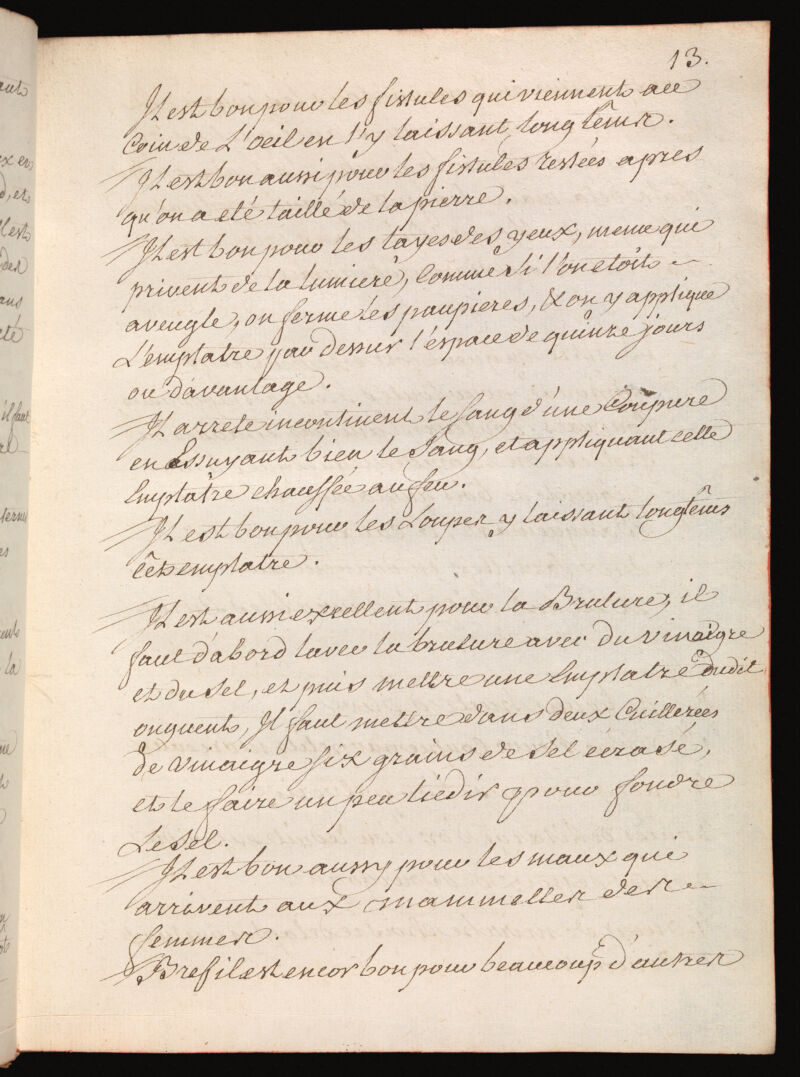 13.
Il est bon pour les fistules qui viennent au
Coin de L'oeil en l'y laissant longtêms.
Il est bon aussi pour les fistules restées apres
qu'on a eté taillé de la pierre.
Il est bon pour les tayes des yeux, meme qui
privent de la lumiere, Comme Si l'on etoit
aveugle, on ferme les paupieres, & on y applique
L'emplatre par dessus l'espace de quinze jours
ou davantage.
Il arrete incontinent le Sang d'une Coupure
en Essuyant bien le Sang, et appliquant cette
Emplâtre chauffée au feu.
Il est bon pour les Loupes, y laissant longtêms
cet emplatre.
Il est aussi excellent pour la Brulure, il
faut d'abord laver la brulure avec du vinaigre
et du Sel, et puis mettre une Emplatre dudit
onguent, Il faut mettre dans deux Cuillerées
de vinaigre six grains de Sel écrasé,
et le faire un peu tiedir pour fondre
Le Sel.
Il est bon aussy pour les maux qui
arrivent aux mammelles des
femmes.
Bref il est encor bon pour beaucoup d'autres